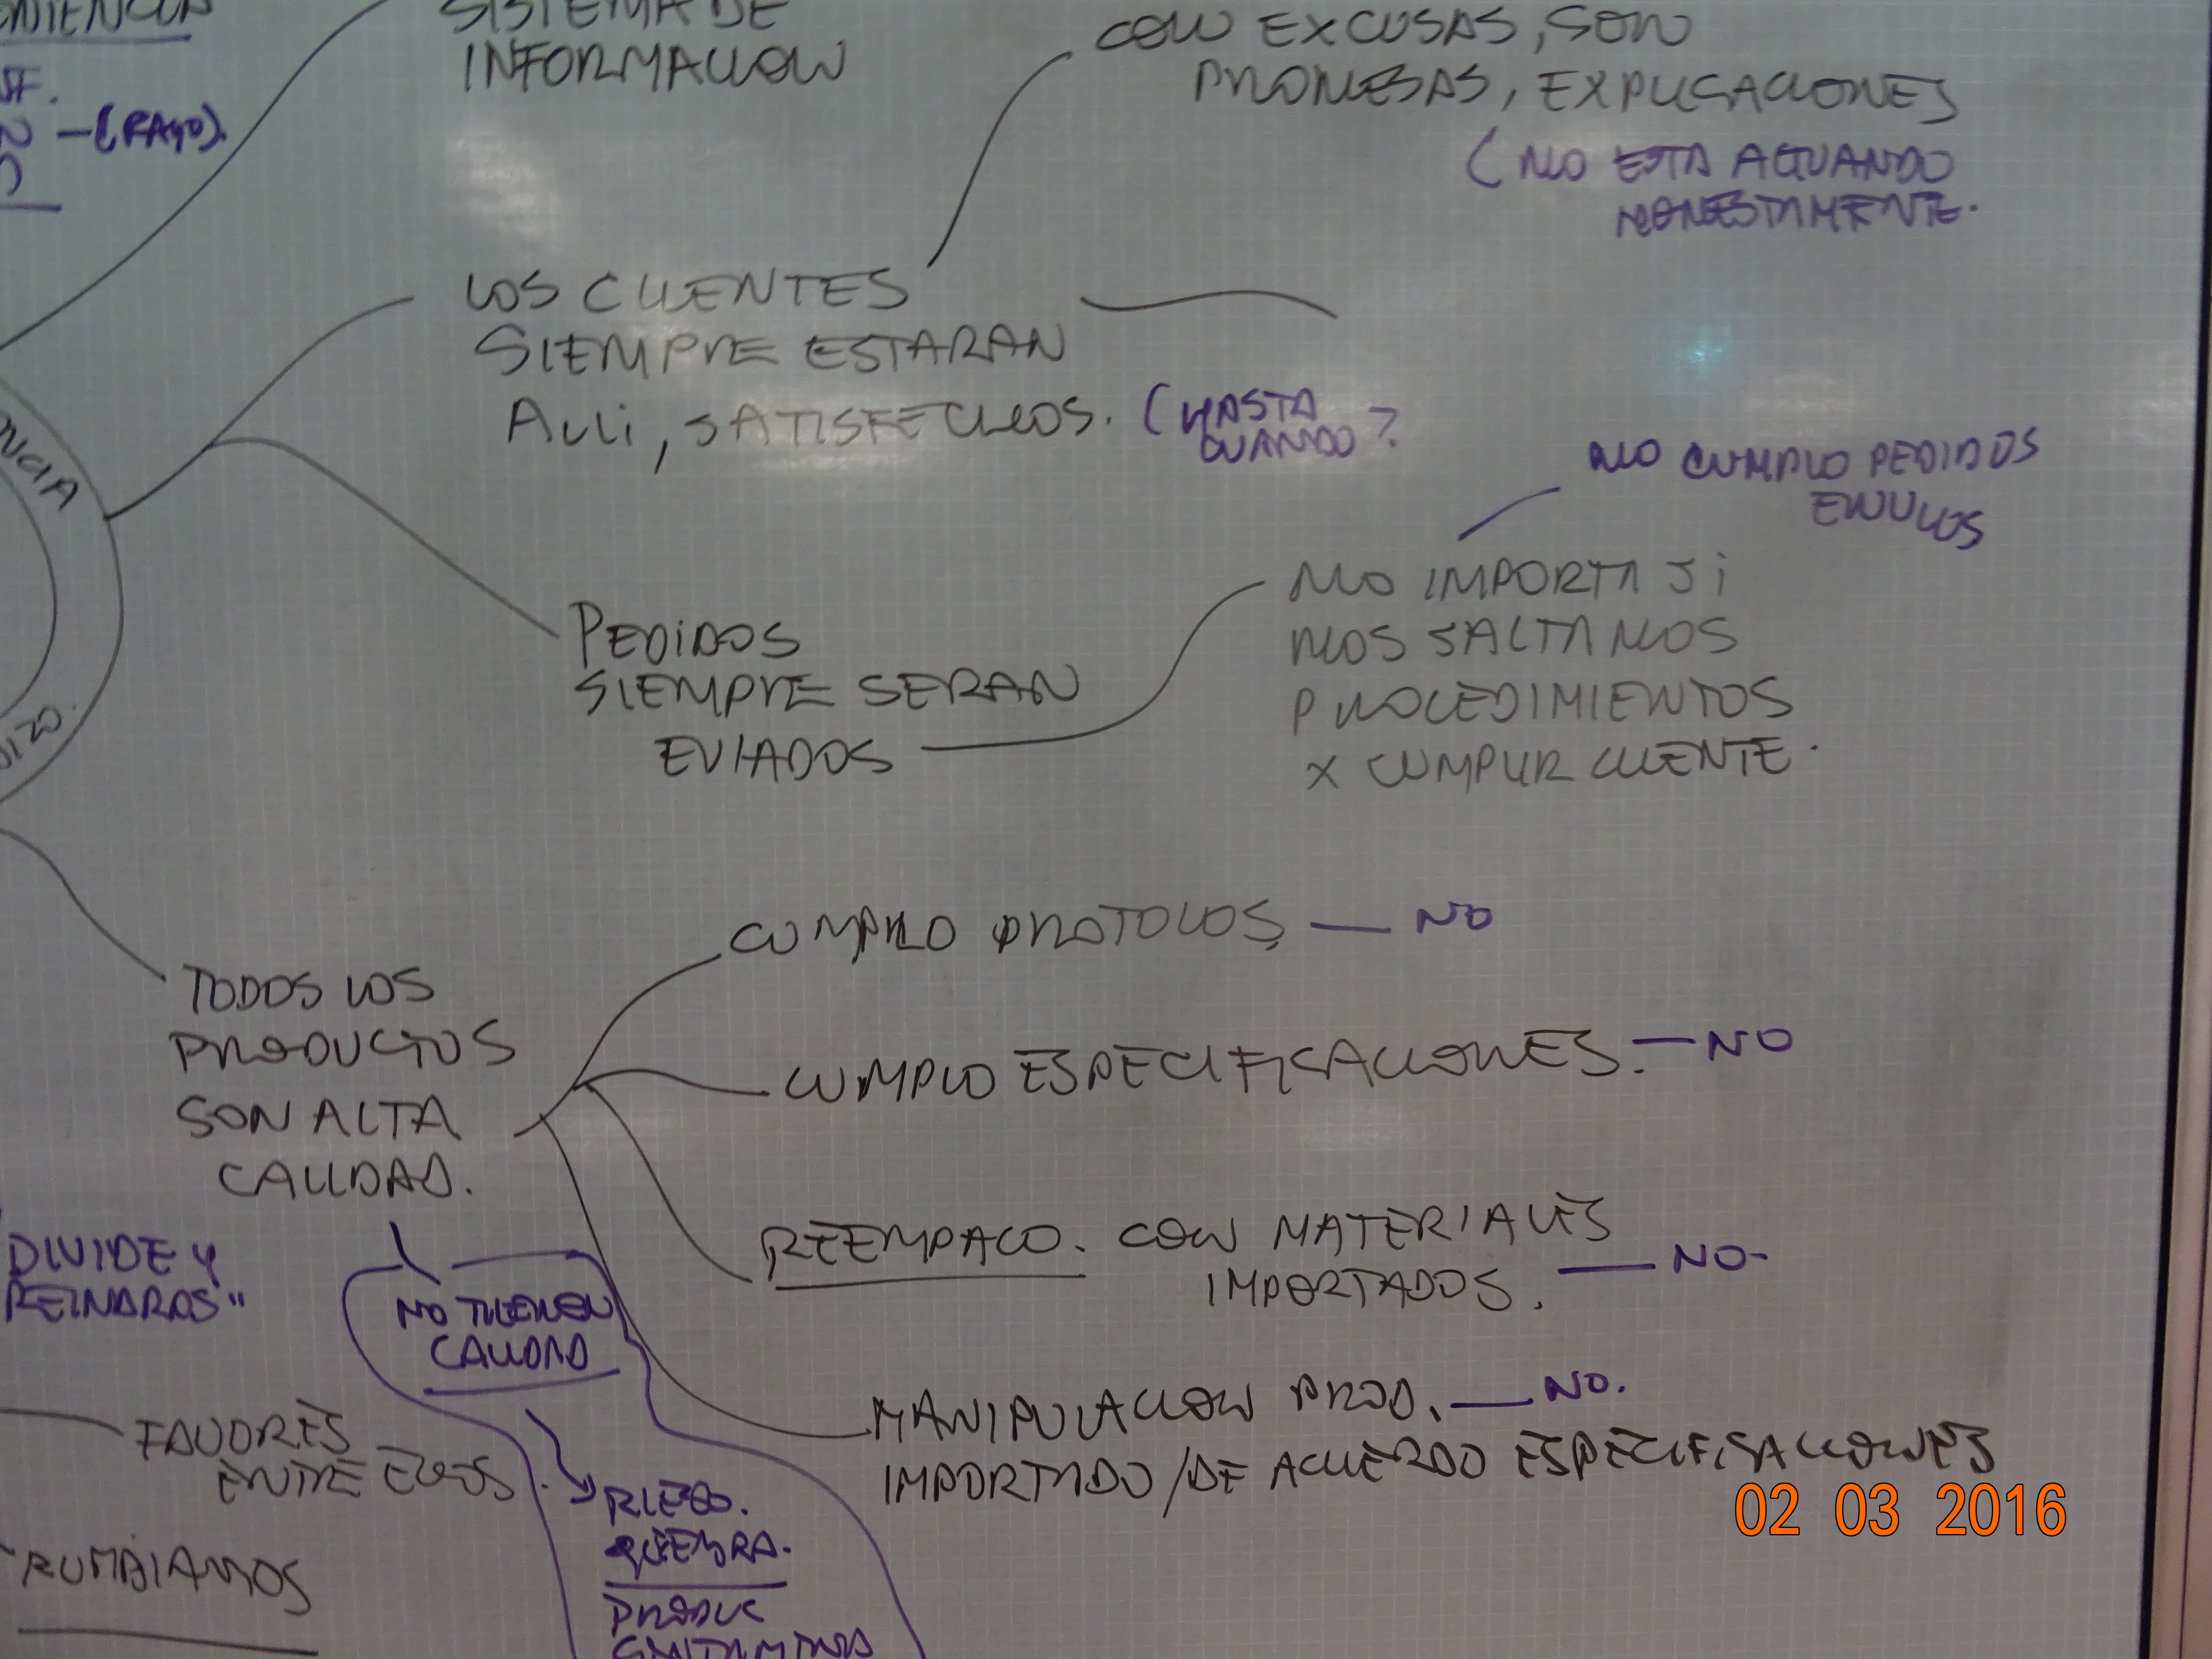 SISTEMA DE
INFORMACION
CON EXCUSAS, SON
PROMESAS, EXPLICACIONES
(NO ESTA ACTUANDO
HONESTAMENTE.
(PAGO).
LOS CLIENTES
SIEMPRE ESTARAN
ALLI, SATISFECHOS.
(HASTA
CUANDO?
NO CUMPLO PEDIDOS
PEDIDOS
SIEMPRE SERAN
EVIADOS
NO IMPORTA SI
NOS SALTAMOS
PROCEDIMIENTOS
X CUMPLIR CLIENTE.
TODOS LOS
PRODUCTOS
SON ALTA
CALIDAD.
CUMPLO PROTOLOS — NO
CUMPLO ESPECIFICACIONES. — NO
REEMPACO. CON MATERIALES
IMPORTADOS. — NO-
MANIPULACION PROD. — NO.
IMPORTADO / DE ACUERDO ESPECIFICACIONES
DIVIDE Y
REINARAS"
NO TIENEN
CALIDAD
FAVORES
ENTRE EGOS.
QUIEBRA.
02 03 2016